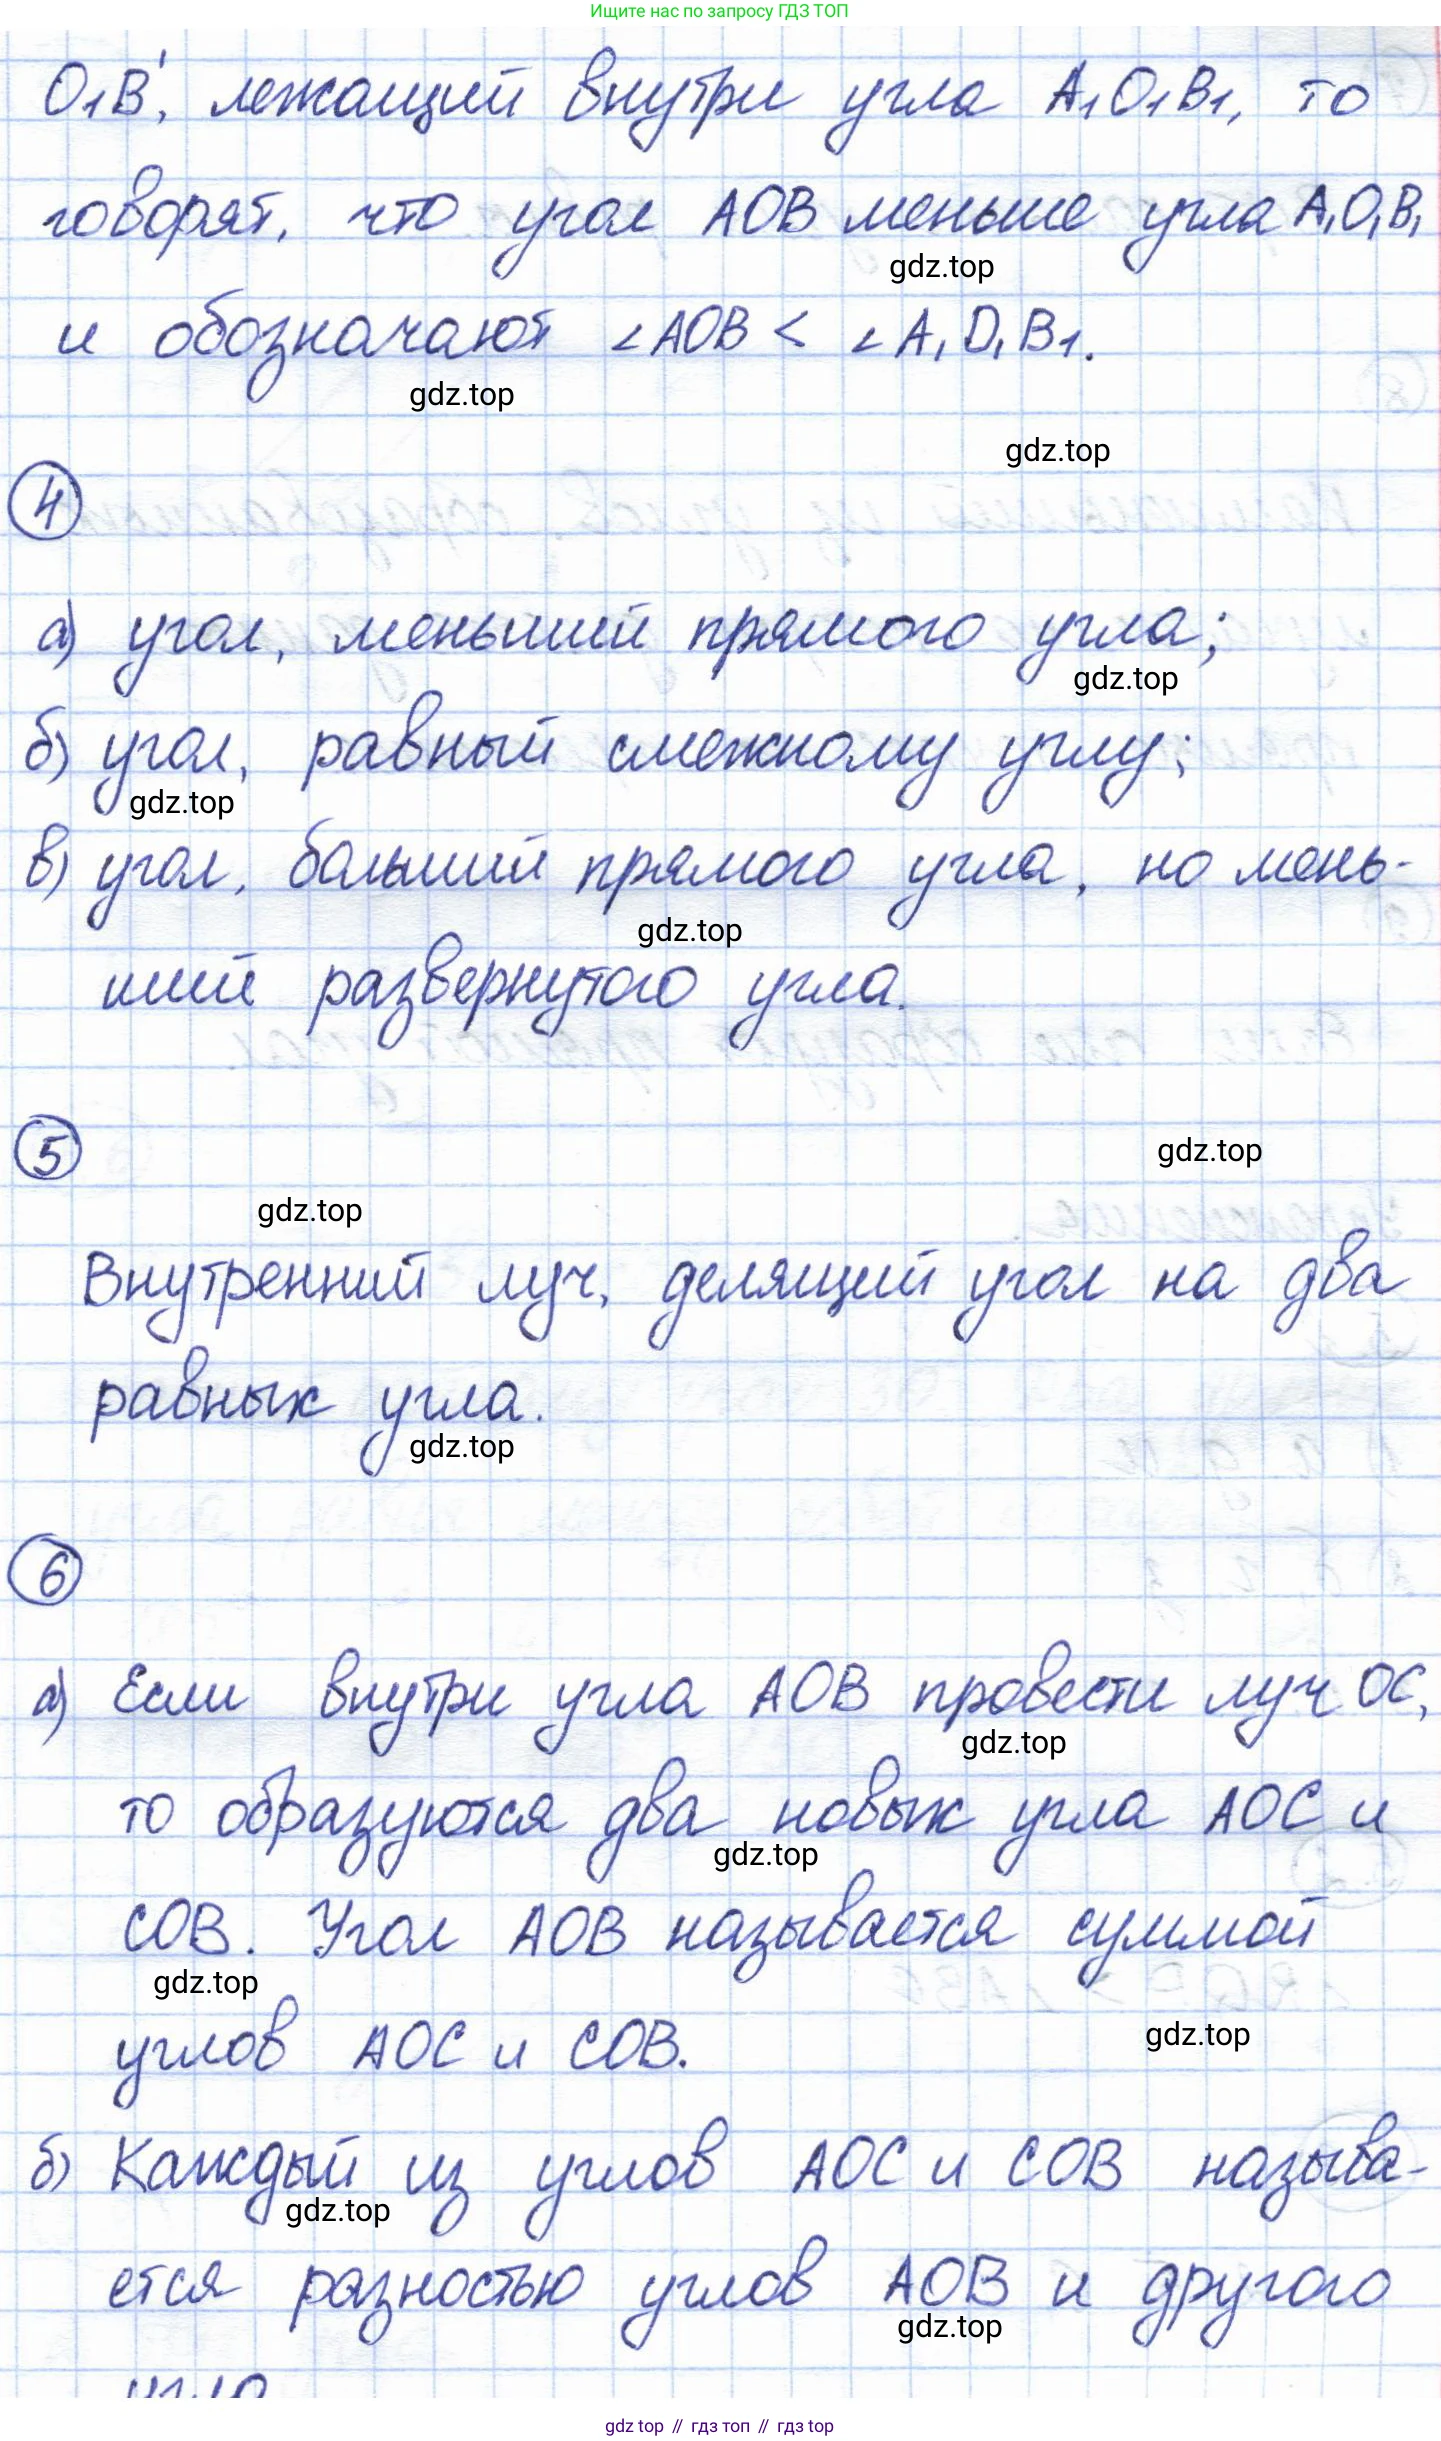 Ищите нас по запросу ГДЗ ТОП
O₁B', лежащий внутри угла A₁O₁B₁, то
говорят, что угол AOB меньше угла A₁O₁B₁
gdz.top
и обозначают ∠AOB < ∠A₁O₁B₁.
gdz.top
gdz.top
4
а) угол, меньший прямого угла;
gdz.top
б) угол, равный смежному углу;
gdz.top
в) угол, больший прямого угла, но мень-
gdz.top
ший развернутого угла.
5
gdz.top
gdz.top
Внутренний луч, делящий угол на два
равных угла.
gdz.top
6
а) Если внутри угла AOB провести луч OC,
gdz.top
то образуются два новых угла AOC и
gdz.top
COB. Угол AOB называется суммой
gdz.top
углов AOC и COB.
gdz.top
б) Каждый из углов AOC и COB называ-
gdz.top
ется разностью углов AOB и другого
gdz.top
угла
gdz top // гдз топ // гдз top